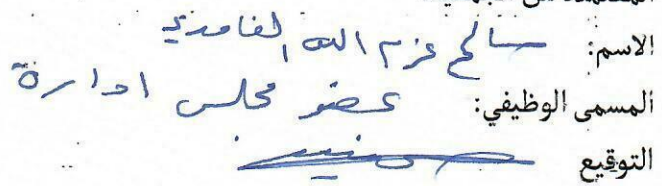 الاسم: صالح عزم الله الغامدي
المسمى الوظيفي: عضو مجلس ادارة
التوقيع